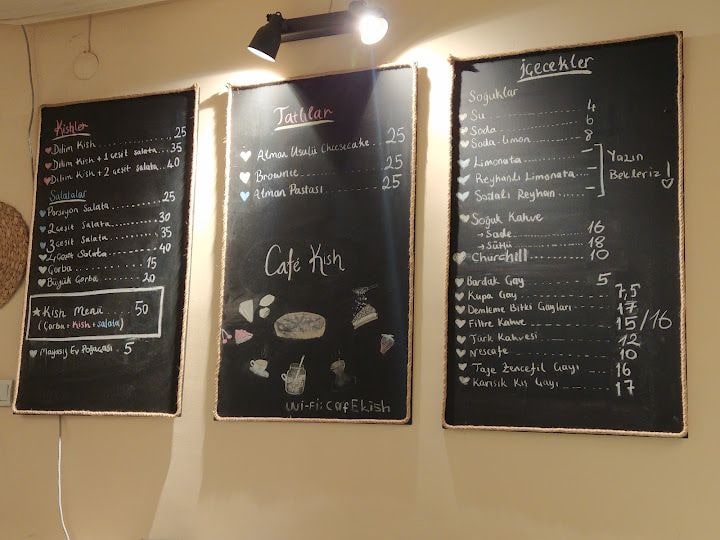 Kishler
Dilim Kish 25
Dilim Kish + 1 çeşit salata 35
Dilim Kish + 2 çeşit salata 40
Salatalar
Porsiyon Salata 25
2 çeşit Salata 30
3 çeşit Salata 35
4 çeşit Salata 40
Çorba 15
Büyük Çorba 20
Kish Menü 50
(Çorba + Kish + salata)
Mayasız Ev Poğaçası 5
Tatlılar
Alman Usulü Cheesecake 25
Brownie 25
Alman Pastası 25
Café Kish
Wi-Fi: CafEkish
İçecekler
Soğuklar
Su 4
Soda 6
Soda-limon 8
Limonata -
Reyhanlı Limonata -
Sodalı Reyhan -
Yazın
Bekleriz!
Soğuk Kahve
→ Sade 16
→ Sütlü 18
Churchill 10
Bardak Çay 5
Kupa Çay 7,5
Demleme Bitki Çayları 17
Filtre Kahve 15/16
Türk Kahvesi 12
Nescafe 10
Taze Zencefil Çayı 16
Karışık Kış Çayı 17